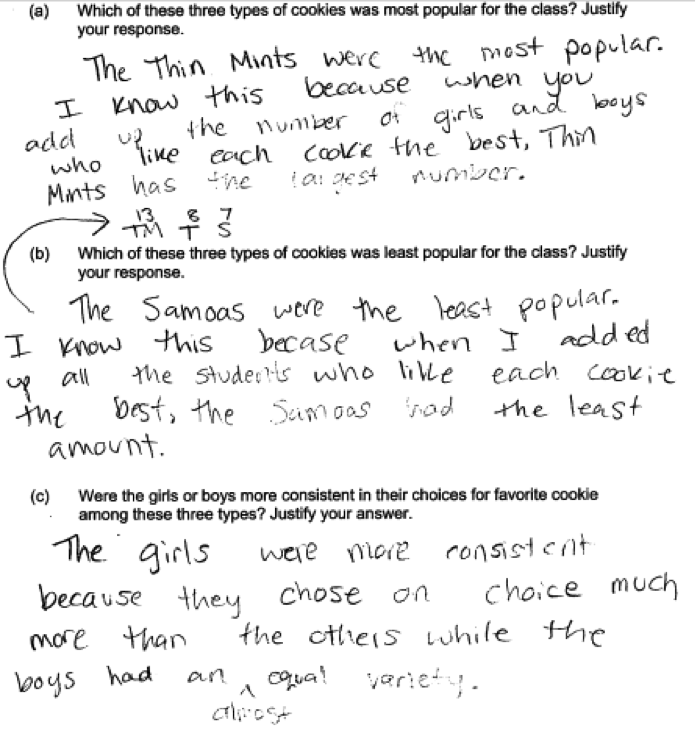 (a) Which of these three types of cookies was most popular for the class? Justify
your response.
The Thin Mints were the most popular.
I know this because when you
add up the number of girls and boys
who like each cookie the best, Thin
Mints has the largest number.
13 8 7
TM T S
(b) Which of these three types of cookies was least popular for the class? Justify
your response.
The Samoas were the least popular.
I know this becase when I added
up all the students who like each cookie
the best, the Samoas had the least
amount.
(c) Were the girls or boys more consistent in their choices for favorite cookie
among these three types? Justify your answer.
The girls were more consistent
because they chose on choice much
more than the others while the
boys had an ^ equal variety.
almost